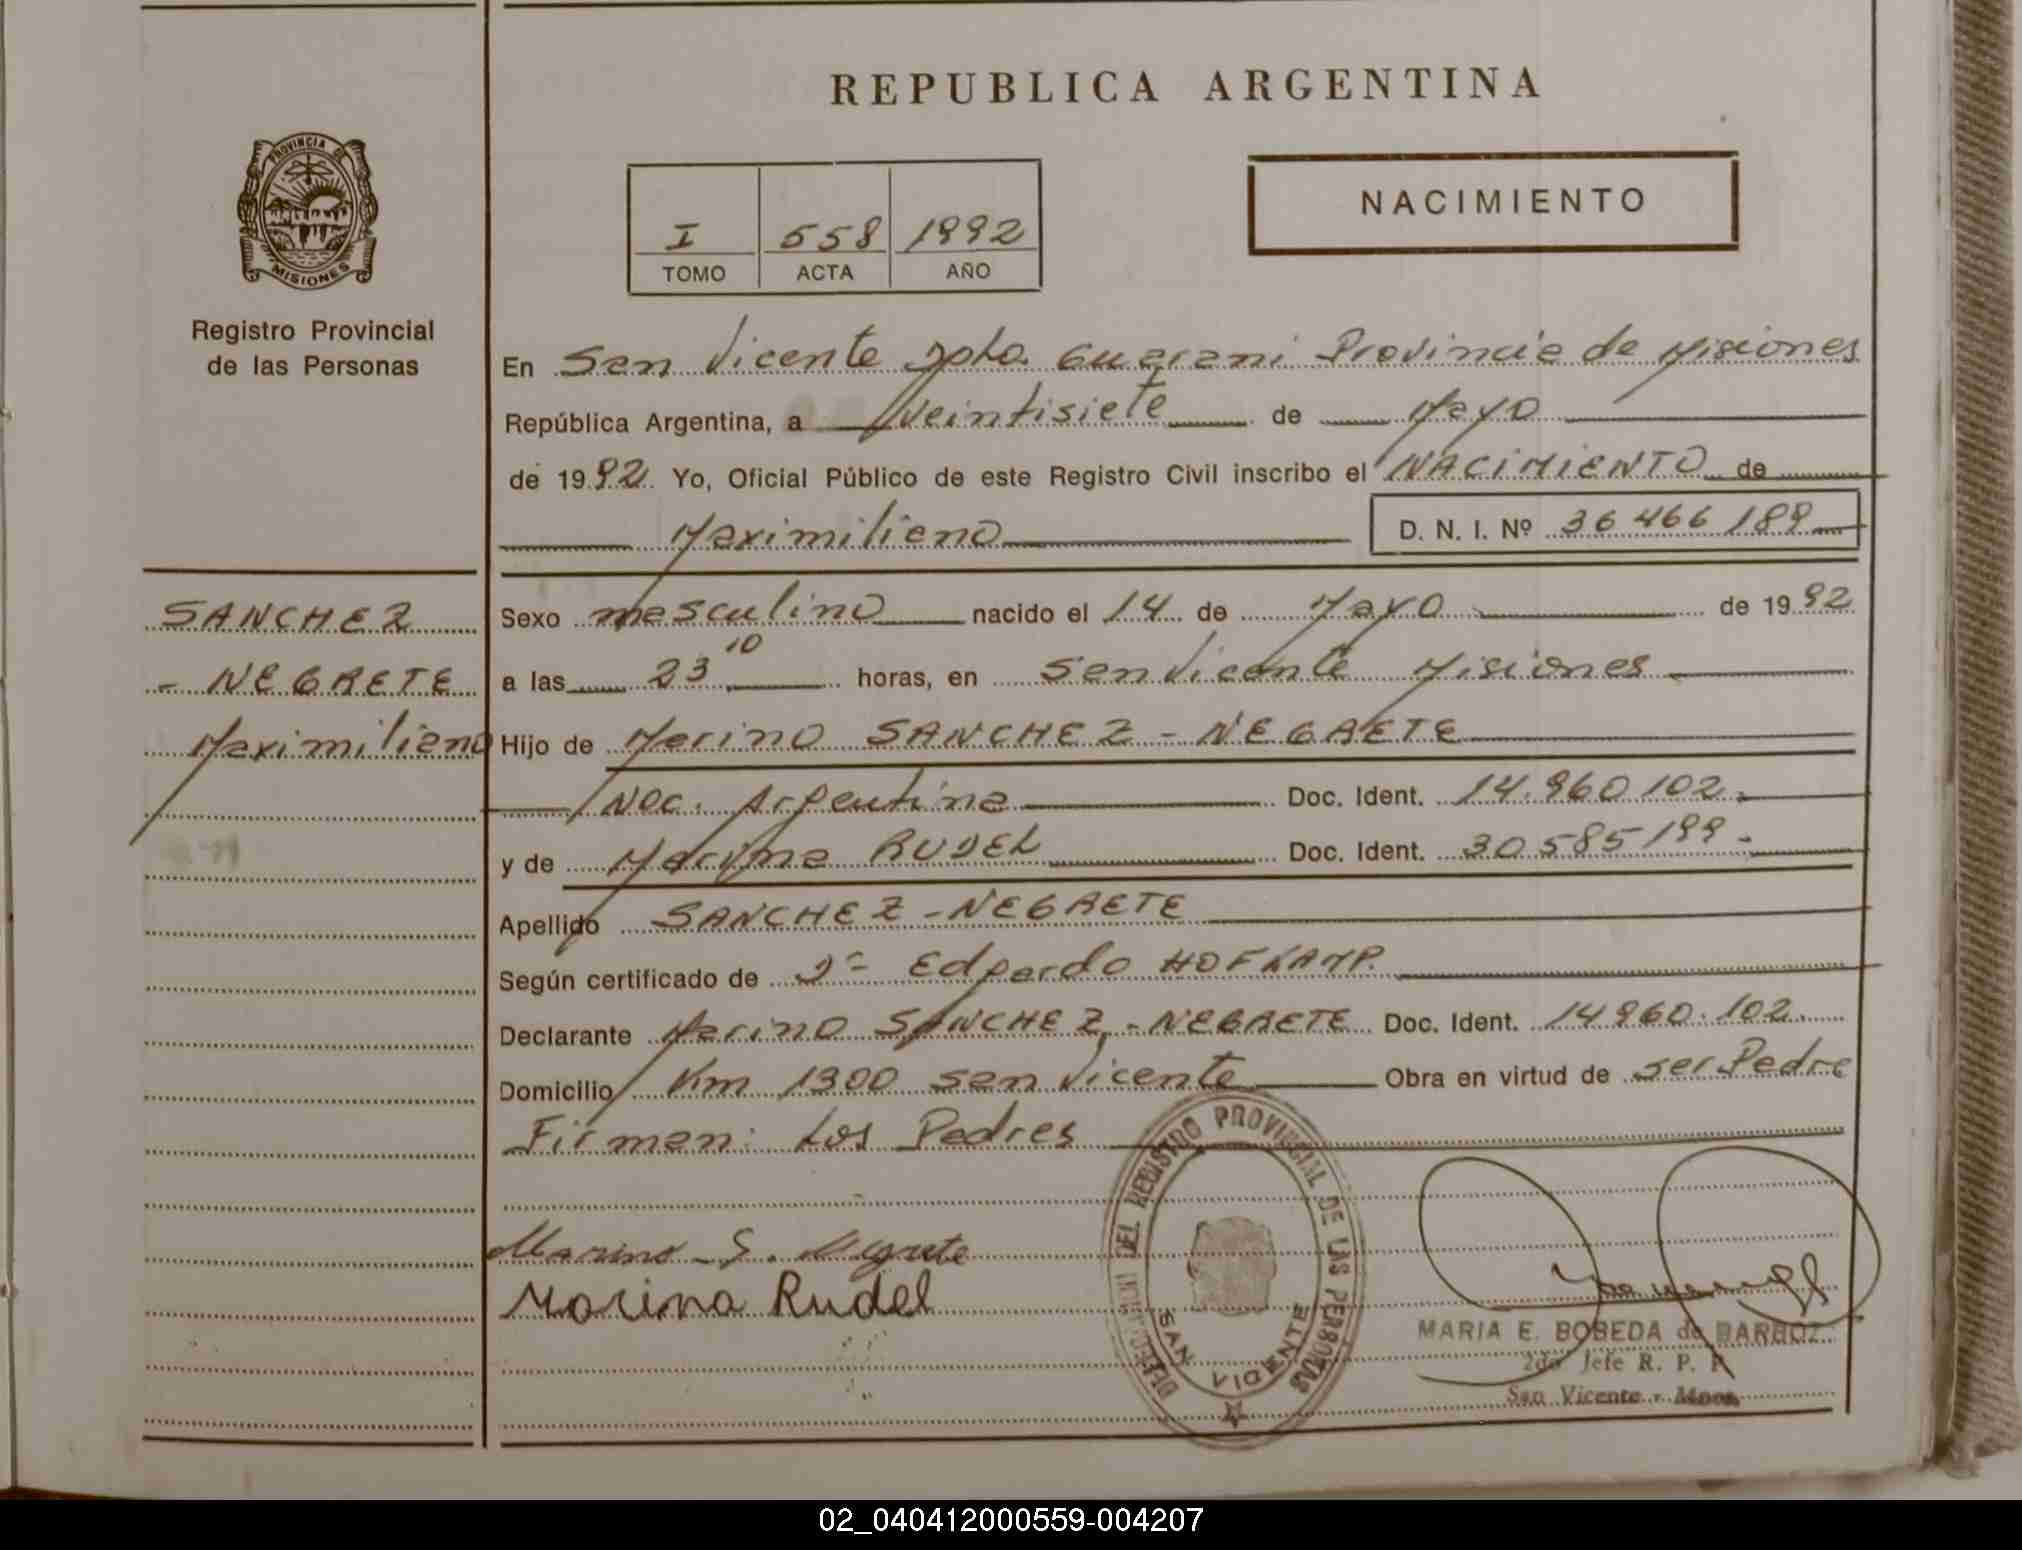 REPUBLICA ARGENTINA
PROVINCIA DE
MISIONES
Registro Provincial
de las Personas
I 558 1992
TOMO ACTA AÑO
NACIMIENTO
En San Vicente Dpto. Guarani Provincia de Misiones
República Argentina, a Veintisiete de Mayo
de 1992 Yo, Oficial Público de este Registro Civil inscribo el NACIMIENTO de
Maximiliano D. N. I. Nº 36 466 189
SANCHEZ
- NEGRETE
Maximiliano
Sexo masculino nacido el 14 de Mayo de 1992
a las 23 10 horas, en San Vicente Misiones
Hijo de Marino SANCHEZ - NEGRETE
Nac. Argentina Doc. Ident. 14.960 102.
y de Marina RUDEL Doc. Ident. 30 585 199.-
Apellido SANCHEZ - NEGRETE
Según certificado de Edgardo HOFKAMP.
Declarante Marino SANCHEZ - NEGRETE Doc. Ident. 14 960.102.
Domicilio Km 1300 San Vicente Obra en virtud de ser Padre
Firman: Los Padres
Marino S. Negrete
Marina Rudel
DEL REGISTRO PROVINCIAL DE LAS PERSONAS
SAN VICENTE
MARIA E. BOBEDA de
2do Jefe R. P. P.
San Vicente - Mnes.
02_040412000559-004207